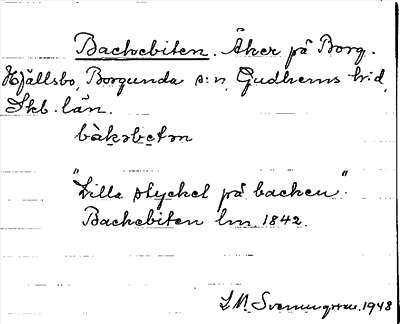 Backebiten. Åker på Borg.
Hjällsbo, Borgunda s:n, Gudhems hd,
Skb. län.
bàkəbetən
"Lilla stycket på backen".
Backebiten lm 1842.
1948